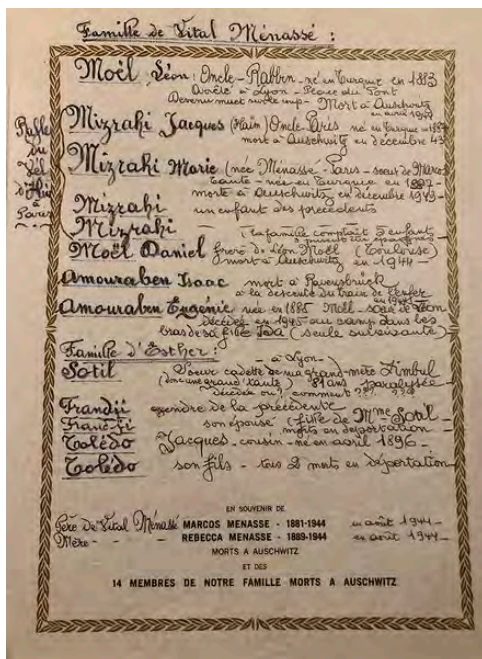 Famille de Vital Ménassé :
Moël Léon : Oncle - Rabbin - né en Turquie en 1883
Arrêté à Lyon - Place du Pont
Devenu muet sur le - Mort à Auschwitz
en avril 1944
Rafle
du
Vél
d'Hiv
à
Paris
Mizrahi Jacques (Haïm) Oncle - Paris né en Turquie en
mort à Auschwitz en décembre 43
Mizrahi Marie (née Ménassé - Paris - soeur de Marcos
tante - née en Turquie en
morte à Auschwitz en décembre 1943 -
Mizrahi un enfant des précédents
Mizrahi - (la famille comptait 5 enfants
Moël Daniel frère de Léon Moël (Toulouse)
mort à Auschwitz en 1944 -
Amouraben Isaac mort à Ravensbrück
à la descente du train de l'enfer
en
Amouraben Eugénie née en 1885 Moël - soeur de Léon
Décédée en 1945 - au camp dans les
bras de sa fille (seule survivante)
Famille d'Esther :
Sotil - à Lyon -
Soeur cadette de ma grand-mère Zimbul
(donc une grand'tante) 81 ans paralysée -
Décédée où ? comment ??? ???
Frandji gendre de la précédente
Franc-ji son épouse (fille de Mme Sotil -
morts en déportation
Tolédo Jacques - cousin - né en avril 1896 -
Tolédo son fils - tous 2 morts en déportation
EN SOUVENIR DE
Père de Vital Ménassé MARCOS MENASSE - 1881-1944 en août 1944 -
Mère - - REBECCA MENASSE - 1889-1944 en août 1944 -
MORTS A AUSCHWITZ
ET DES
14 MEMBRES DE NOTRE FAMILLE MORTS A AUSCHWITZ